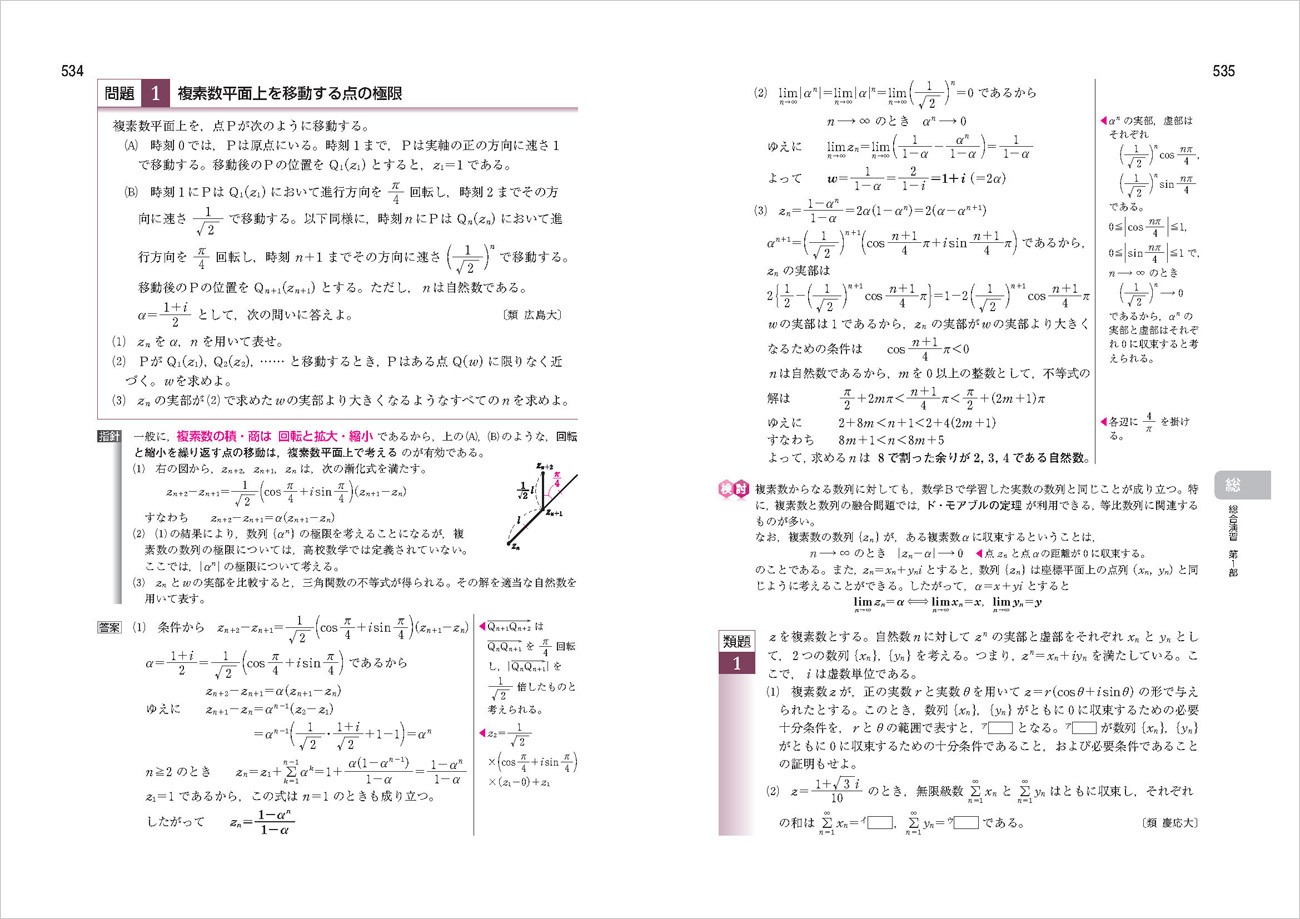 534
問題 1 複素数平面上を移動する点の極限
複素数平面上を，点Pが次のように移動する。
(A) 時刻0では，Pは原点にいる。時刻1まで，Pは実軸の正の方向に速さ1
で移動する。移動後のPの位置を Q₁(z₁) とすると，z₁=1 である。
(B) 時刻1にPは Q₁(z₁) において進行方向を π/4 回転し，時刻2までその方
向に速さ 1/√2 で移動する。以下同様に，時刻nにPは Qₙ(zₙ) において進
行方向を π/4 回転し，時刻 n+1 までその方向に速さ (1/√2)ⁿ で移動する。
移動後のPの位置を Qₙ₊₁(zₙ₊₁) とする。ただし，nは自然数である。
α=(1+i)/2 として，次の問いに答えよ。 〔類 広島大〕
(1) zₙ を α，n を用いて表せ。
(2) Pが Q₁(z₁)，Q₂(z₂)，…… と移動するとき，Pはある点 Q(w) に限りなく近
づく。wを求めよ。
(3) zₙ の実部が(2)で求めたwの実部より大きくなるようなすべてのnを求めよ。
指針 一般に，複素数の積・商は 回転と拡大・縮小 であるから，上の(A)，(B)のような，回転
と縮小を繰り返す点の移動は，複素数平面上で考える のが有効である。
(1) 右の図から，zₙ₊₂，zₙ₊₁，zₙ は，次の漸化式を満たす。
zₙ₊₂−zₙ₊₁=1/√2(cos π/4+i sin π/4)(zₙ₊₁−zₙ)
すなわち zₙ₊₂−zₙ₊₁=α(zₙ₊₁−zₙ)
(2) (1)の結果により，数列{αⁿ}の極限を考えることになるが，複
素数の数列の極限については，高校数学では定義されていない。
ここでは，|αⁿ|の極限について考える。
(3) zₙとwの実部を比較すると，三角関数の不等式が得られる。その解を適当な自然数を
用いて表す。
zₙ₊₂
π/4
1/√2 l
zₙ₊₁
l
zₙ
答案 (1) 条件から zₙ₊₂−zₙ₊₁=1/√2(cos π/4+i sin π/4)(zₙ₊₁−zₙ)
α=(1+i)/2=1/√2(cos π/4+i sin π/4) であるから
zₙ₊₂−zₙ₊₁=α(zₙ₊₁−zₙ)
ゆえに zₙ₊₁−zₙ=αⁿ⁻¹(z₂−z₁)
=αⁿ⁻¹(1/√2・(1+i)/√2+1−1)=αⁿ
n≧2 のとき zₙ=z₁+Σ[k=1, n−1]αᵏ=1+α(1−αⁿ⁻¹)/(1−α)=(1−αⁿ)/(1−α)
z₁=1 であるから，この式は n=1 のときも成り立つ。
したがって zₙ=(1−αⁿ)/(1−α)
◀Qₙ₊₁Qₙ₊₂ は
QₙQₙ₊₁ を π/4 回転
し，|QₙQₙ₊₁| を
1/√2 倍したものと
考えられる。
◀z₂=1/√2
×(cos π/4+i sin π/4)
×(z₁−0)+z₁
535
(2) lim[n→∞]|αⁿ|=lim[n→∞]|α|ⁿ=lim[n→∞](1/√2)ⁿ=0 であるから
n→∞ のとき αⁿ→0
ゆえに lim[n→∞]zₙ=lim[n→∞](1/(1−α)−αⁿ/(1−α))=1/(1−α)
よって w=1/(1−α)=2/(1−i)=1+i (=2α)
(3) zₙ=(1−αⁿ)/(1−α)=2α(1−αⁿ)=2(α−αⁿ⁺¹)
αⁿ⁺¹=(1/√2)ⁿ⁺¹(cos (n+1)/4 π+i sin (n+1)/4 π) であるから，
zₙ の実部は
2{1/2−(1/√2)ⁿ⁺¹cos (n+1)/4 π}=1−2(1/√2)ⁿ⁺¹cos (n+1)/4 π
wの実部は1であるから，zₙの実部がwの実部より大きく
なるための条件は cos (n+1)/4 π<0
nは自然数であるから，mを0以上の整数として，不等式の
解は π/2+2mπ<(n+1)/4 π<π/2+(2m+1)π
ゆえに 2+8m<n+1<2+4(2m+1)
すなわち 8m+1<n<8m+5
よって，求めるnは 8で割った余りが2，3，4である自然数。
◀αⁿの実部，虚部は
それぞれ
(1/√2)ⁿcos nπ/4，
(1/√2)ⁿsin nπ/4
である。
0≦|cos nπ/4|≦1，
0≦|sin nπ/4|≦1で，
n→∞ のとき
(1/√2)ⁿ→0
であるから，αⁿの
実部と虚部はそれぞ
れ0に収束すると考
えられる。
◀各辺に 4/π を掛け
る。
検討 複素数からなる数列に対しても，数学Bで学習した実数の数列と同じことが成り立つ。特
に，複素数と数列の融合問題では，ド・モアブルの定理 が利用できる，等比数列に関連する
ものが多い。
なお，複素数の数列{zₙ}が，ある複素数αに収束するということは，
n→∞ のとき |zₙ−α|→0 ◀点zₙと点αの距離が0に収束する。
のことである。また，zₙ=xₙ+yₙi とすると，数列{zₙ}は座標平面上の点列(xₙ, yₙ)と同
じように考えることができる。したがって，α=x+yi とすると
lim[n→∞]zₙ=α⟺lim[n→∞]xₙ=x，lim[n→∞]yₙ=y
総
総合演習 第1部
類題 1 zを複素数とする。自然数nに対して zⁿ の実部と虚部をそれぞれ xₙ と yₙ とし
て，2つの数列{xₙ}，{yₙ}を考える。つまり，zⁿ=xₙ+iyₙ を満たしている。こ
こで，iは虚数単位である。
(1) 複素数zが，正の実数rと実数θを用いて z=r(cosθ+i sinθ) の形で与え
られたとする。このとき，数列{xₙ}，{yₙ}がともに0に収束するための必要
十分条件を，rとθの範囲で表すと，ア□ となる。ア□ が数列{xₙ}，{yₙ}
がともに0に収束するための十分条件であること，および必要条件であること
の証明もせよ。
(2) z=(1+√3 i)/10 のとき，無限級数 Σ[n=1, ∞]xₙ と Σ[n=1, ∞]yₙ はともに収束し，それぞれ
の和は Σ[n=1, ∞]xₙ=イ□，Σ[n=1, ∞]yₙ=ウ□ である。 〔類 慶応大〕